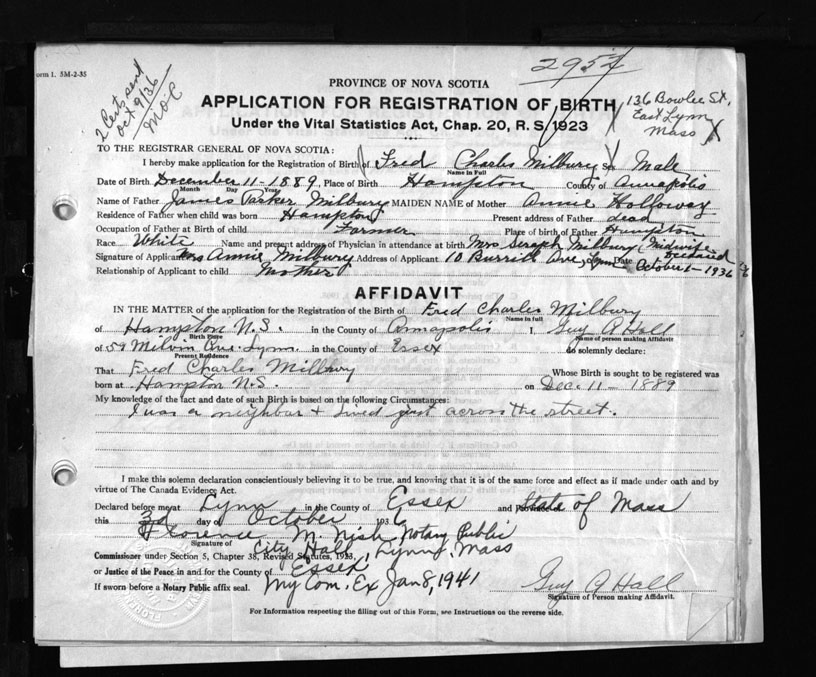 orm 1. 5M-2-35
2957
2 Certs send
Oct 9/36
PROVINCE OF NOVA SCOTIA
APPLICATION FOR REGISTRATION OF BIRTH
136 Bowler St,
East Lynn
Mass
Under the Vital Statistics Act, Chap. 20, R. S. 1923
TO THE REGISTRAR GENERAL OF NOVA SCOTIA:
I hereby make application for the Registration of Birth of Fred Charles Milbury Sex Male
Name in Full
Date of Birth December 11 - 1889, Place of Birth Hampton County of Annapolis
Month Day Year
Name of Father James Parker Milbury MAIDEN NAME of Mother Annie Holloway
Residence of Father when child was born Hampton Present address of Father dead
Occupation of Father at Birth of child Farmer Place of birth of Father Hampton
Race White Name and present address of Physician in attendance at birth Mrs Seraph Milbury, Midwife
Deceased
Signature of Applicant Mrs Annie Milbury Address of Applicant 10 Burrill Ave, Lynn Date October 1 - 1936
Relationship of Applicant to child Mother
AFFIDAVIT
IN THE MATTER of the application for the Registration of the Birth of Fred Charles Milbury
Name in full
of Hampton N.S. in the County of Annapolis I, Guy A Hall
Birth Place Name of person making Affidavit
of 59 Melvin Ave. Lynn in the County of Essex do solemnly declare:
Present Residence
That Fred Charles Milbury Whose Birth is sought to be registered was
born at Hampton N.S. on Dec. 11 - 1889
My knowledge of the fact and date of such Birth is based on the following Circumstances:
I was a neighbor + lived just across the street.
I make this solemn declaration conscientiously believing it to be true, and knowing that it is of the same force and effect as if made under oath and by
virtue of The Canada Evidence Act.
Declared before me at Lynn in the County of Essex and State of Mass
this 3d day of October 1936
Florence M. Nish Notary Public
Signature of
City Hall, Lynn, Mass
Commissioner under Section 5, Chapter 38, Revised Statutes, 1923,
or Justice of the Peace in and for the County of Essex
If sworn before a Notary Public affix seal. My Com. Ex Jan 8, 1941
Guy A Hall
Signature of Person making Affidavit.
For Information respecting the filling out of this Form, see Instructions on the reverse side.